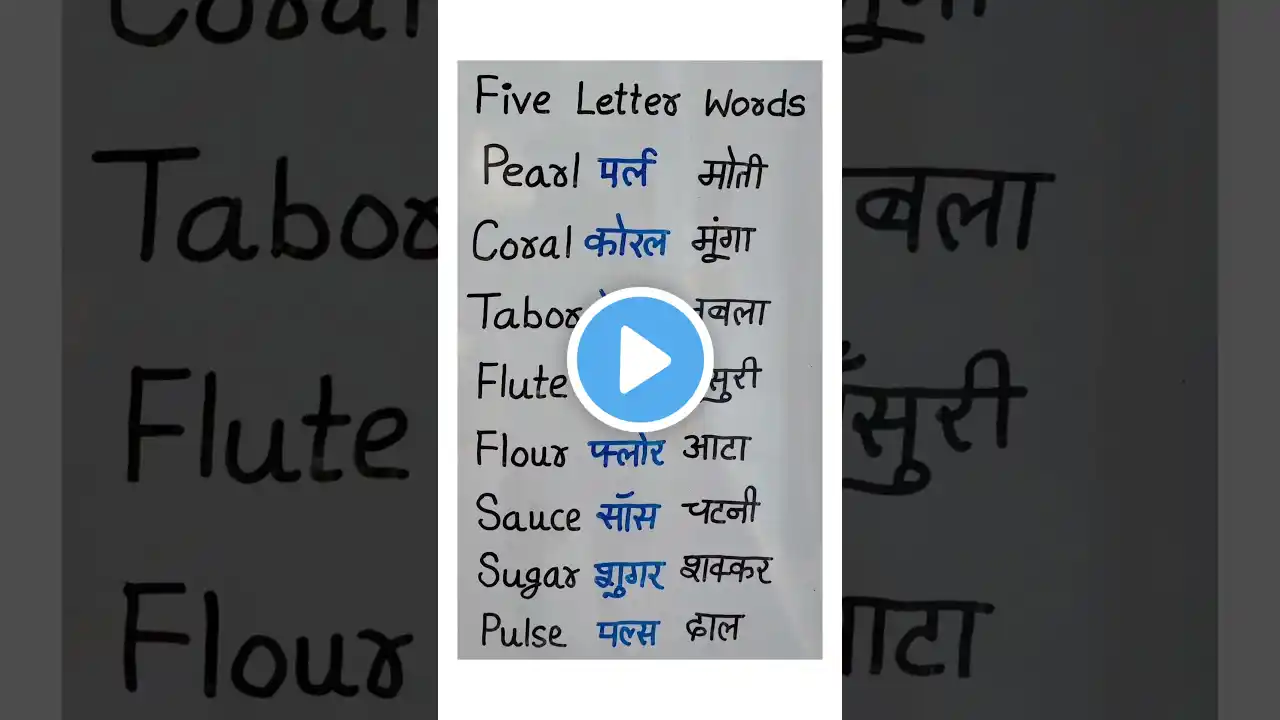 Five Letter Words
Pearl पर्ल मोती
Coral कोरल मूंगा
Tabor
Flute
Flour फ्लोर आटा
Sauce सॉस चटनी
Sugar शुगर शक्कर
Pulse पल्स दाल